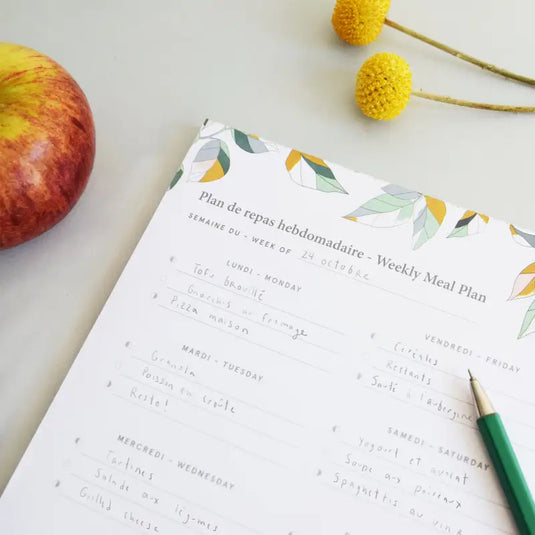 Plan de repas hebdomadaire - Weekly Meal Plan
SEMAINE DU - WEEK OF 24 octobre
LUNDI - MONDAY
Tofu brouillé
Gnocchis au fromage
Pizza maison
MARDI - TUESDAY
Granola
Poisson en croûte
Resto!
MERCREDI - WEDNESDAY
Tartines
Salade aux légumes
Grilled cheese
VENDREDI - FRIDAY
Céréales
Restants
Sauté à l'aubergine
SAMEDI - SATURDAY
Yogourt et
Soupe aux poireaux
Spaghettis au vin